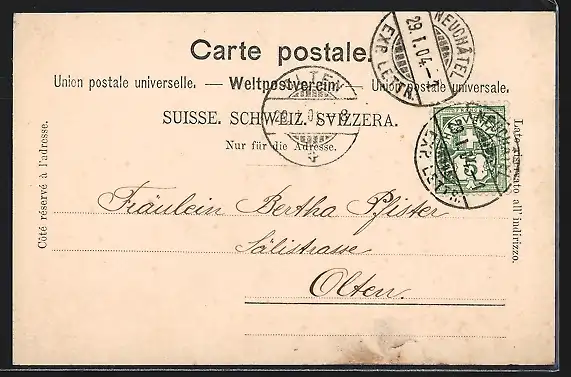 Carte postale.
Union postale universelle. — Weltpostverein. — Unione postale universale.
SUISSE. SCHWEIZ. SVIZZERA.
Nur für die Adresse.
Côté réservé à l'adresse.
Lato riservato all'indirizzo.
NEUCHÂTEL
29.I.04.
EXP. LETTR.
OLTEN
Fräulein Bertha Pfister
Sälistrasse
Olten.